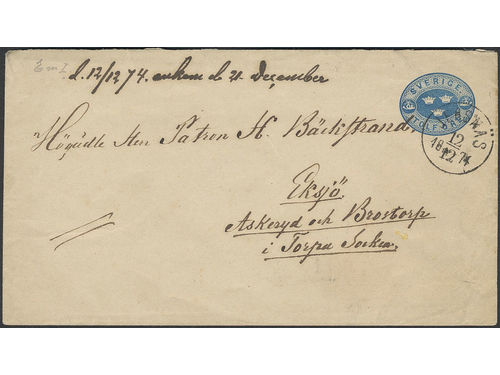 d. 12/12 74. ankom d 21. December
SVERIGE
TOLF ÖRE
12
18 12 74
Högädle Herr Patron H. Bäckstrand,
Eksjö
Askeryd och Brostorp
i Torpa Socken.